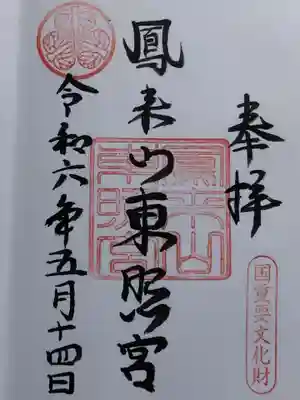 奉拝
国重要文化財
鳳来山東照宮
鳳来山東照宮
令和六年五月十四日